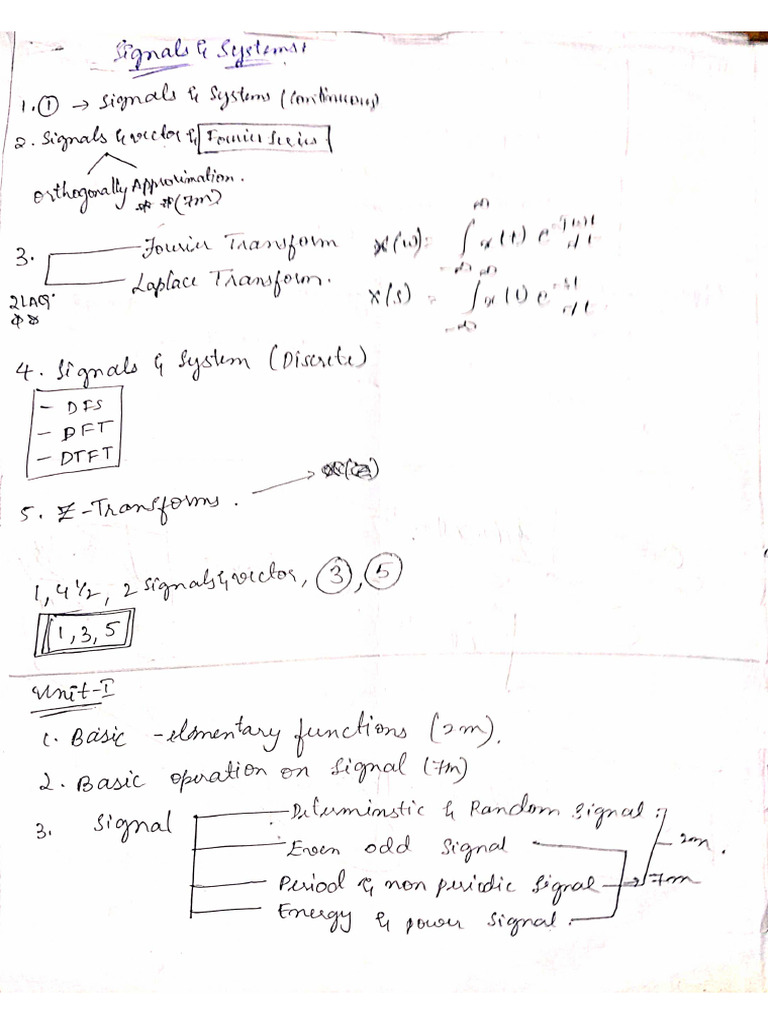 Signals & Systems:
1. ① → Signals & Systems (Continuous)
2. Signals & vector & Fourier Series
Orthogonally Approximation.
** (7m)
3. Fourier Transform X(w) = ∫ x(t) e^-jwt dt
Laplace Transform. X(s) = ∫ x(t) e^-st dt
2LAQ
4. Signals & System (Discrete)
- DFS
- DFT
- DTFT
5. Z-Transforms. →
1, 4 1/2, 2 signals & vector, ③, ⑤
1, 3, 5
Unit-I
1. Basic -elmentary functions (2m).
2. Basic operation on signal (7m)
3. Signal
Determinstic & Random signal
Even odd signal
2m.
Period & non periodic signal → 7m
Energy & power signal.